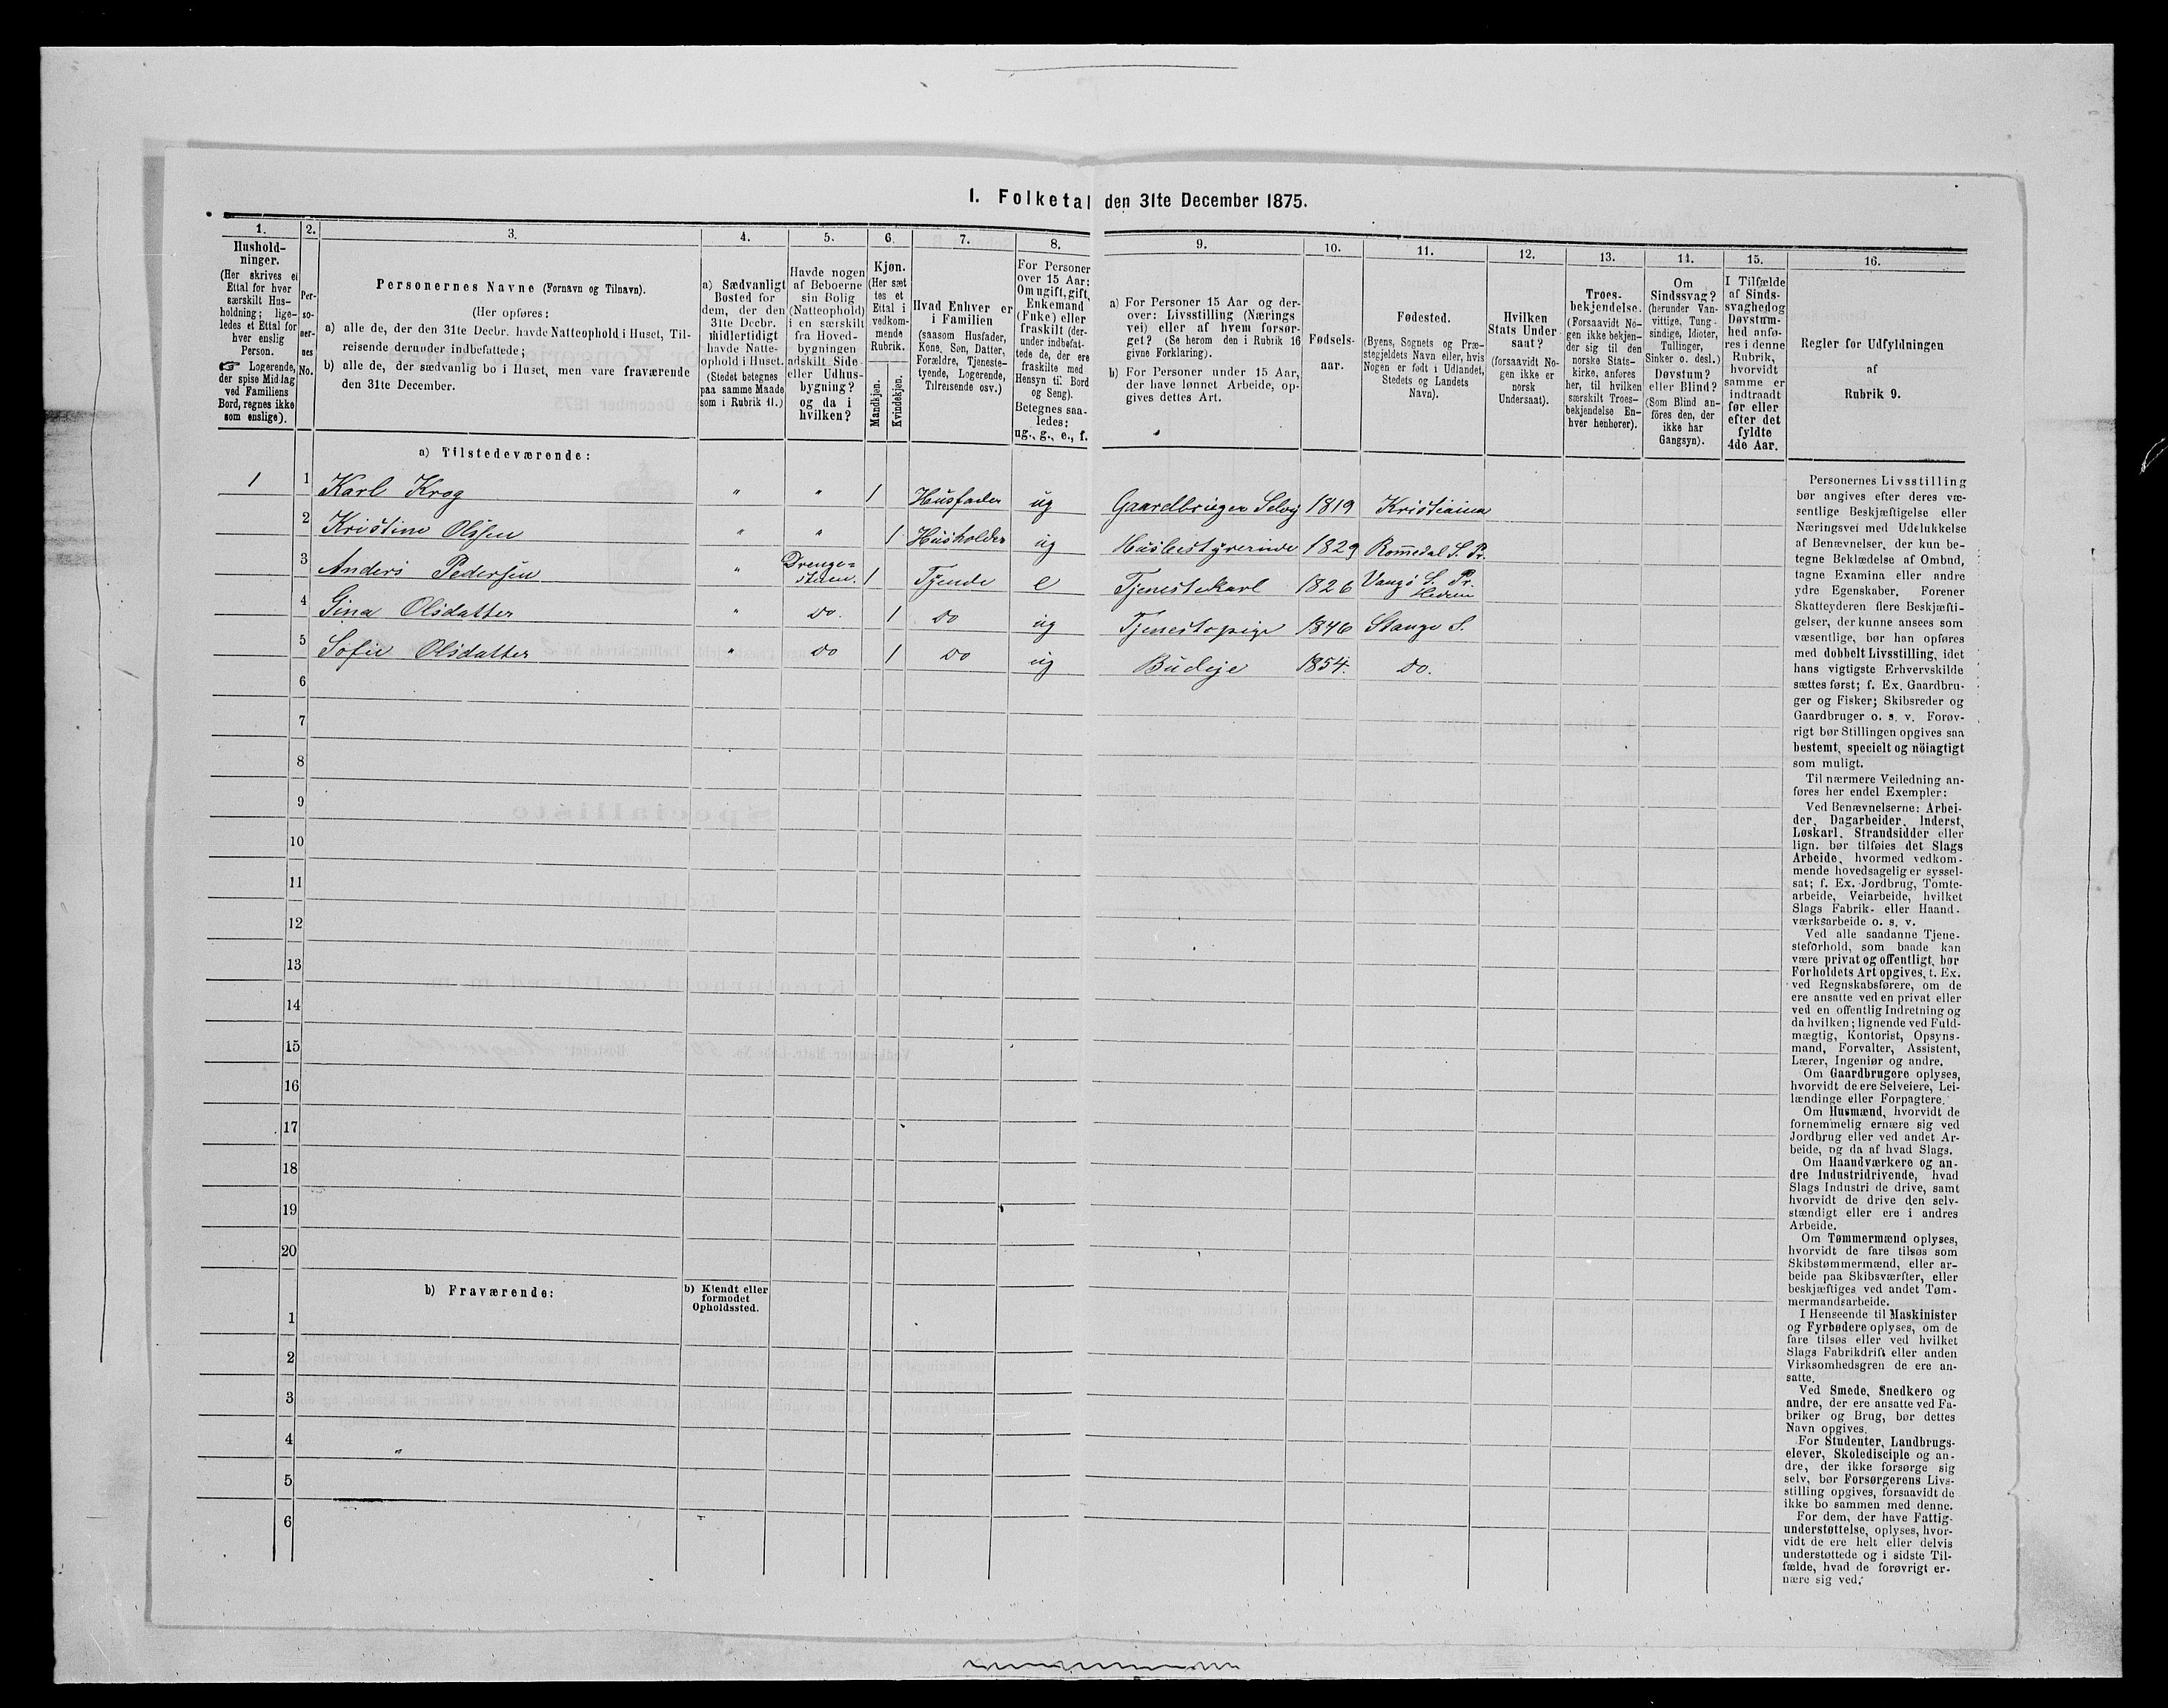 I. Folketal den 31te December 1875.
1.
Hushold-
ninger.
(Her skrives et
Ettal for hver
særskilt Hus-
holdning; lige-
ledes et Ettal for
hver enslig
Person.
☞ Logerende,
der spise Middag
ved Familiens
Bord, regnes ikke
som enslige).
2.
Per-
so-
ner-
nes
No.
3.
Personernes Navne (Fornavn og Tilnavn).
(Her opføres:
a) alle de, der den 31te Decbr. havde Natteophold i Huset, Til-
reisende derunder indbefattede;
b) alle de, der sædvanlig bo i Huset, men vare fraværende
den 31te December.
4.
a) Sædvanligt
Bosted for
dem, der den
31te Decbr.
midlertidigt
havde Natte-
ophold i Huset.
(Stedet betegnes
paa samme Maade
som i Rubrik 11.)
5.
Havde nogen
af Beboerne
sin Bolig
(Natteophold)
i en særskilt
fra Hoved-
bygningen
adskilt Side-
eller Udhus-
bygning?
og da i
hvilken?
6.
Kjøn.
(Her sæt
tes et
Ettal i
vedkom-
mende
Rubrik.
Mandkjøn.
Kvindekjøn.
7.
Hvad Enhver er
i Familien
(saasom Husfader,
Kone, Søn, Datter,
Forældre, Tjeneste-
tyende, Logerende,
Tilreisende osv.)
8.
For Personer
over 15 Aar:
Om ugift, gift,
Enkemand
(Enke) eller
fraskilt (der-
under indbefat-
tede de, der ere
fraskilte med
Hensyn til Bord
og Seng).
Betegnes saa-
ledes:
ug., g., e., f.
9.
a) For Personer 15 Aar og der-
over: Livsstilling (Nærings
vei) eller af hvem forsør-
get? (Se herom den i Rubrik 16
givne Forklaring).
b) For Personer under 15 Aar,
der have lønnet Arbeide, op-
gives dettes Art.
10.
Fødsels-
aar.
11.
Fødested.
(Byens, Sognets og Præ-
stegjeldets Navn eller, hvis
Nogen er født i Udlandet,
Stedets og Landets
Navn).
12.
Hvilken
Stats Under-
saat?
(forsaavidt No-
gen ikke er
norsk
Undersaat).
13.
Troes-
bekjendelse.
(Forsaavidt No-
gen ikke bekjen-
der sig til den
norske Stats-
kirke, anføres
her, til hvilken
særskilt Troes-
bekjendelse En-
hver henhører).
14.
Om
Sindssvag?
(herunder Van-
vittige, Tung-
sindige, Idioter,
Tullinger,
Sinker o. desl.)
Døvstum?
eller Blind?
(Som Blind an-
føres den, der
ikke har
Gangsyn).
15.
I Tilfælde
af Sinds-
svaghed og
Døvstum-
hed anfø-
res i denne
Rubrik,
hvorvidt
samme er
indtraadt
før eller
efter det
fyldte
4de Aar.
16.
Regler for Udfyldningen
af
Rubrik 9.
a) Tilstedeværende:
1 1 Karl Krog " " 1 Husfader ug Gaardbruger Selvej 1819 Kristiania
2 Kristine Olssen " " 1 Husholder ug Husbestyrerinde 1829 Romedal S. Pr.
3 Anders Pedersen " Drenge= stuen. 1 Tjende e Tjenestekarl 1826 Vangs S. Pr. Hedem
4 Gina Olsdatter " Do. 1 Do ug Tjenestepige 1846 Stange S.
5 Sofie Olsdatter " Do 1 Do ug Budeje 1854. Do.
6
7
8
9
10
11
12
13
14
15
16
17
18
19
20
b) Fraværende:
b) Kjendt eller
formodet
Opholdssted.
1
2
3
4
5
6
Personernes Livsstilling
bør angives efter deres væ-
sentlige Beskjæftigelse eller
Næringsvei med Udelukkelse
af Benævnelser, der kun be-
tegne Beklædelse af Ombud,
tagne Examina eller andre
ydre Egenskaber. Forener
Skatteyderen flere Beskjæfti-
gelser, der kunne ansees som
væsentlige, bør han opføres
med dobbelt Livsstilling, idet
hans vigtigste Erhvervskilde
sættes først; f. Ex. Gaardbru-
ger og Fisker; Skibsreder og
Gaardbruger o. s. v. Forøv-
rigt bør Stillingen opgives saa
bestemt, specielt og nöiagtigt
som muligt.
Til nærmere Veiledning an-
føres her endel Exempler:
Ved Benævnelserne: Arbei-
der, Dagarbeider, Inderst,
Løskarl, Strandsidder eller
lign. bør tilføies det Slags
Arbeide, hvormed vedkom-
mende hovedsagelig er syssel-
sat; f. Ex. Jordbrug, Tomte-
arbeide, Veiarbeide, hvilket
Slags Fabrik- eller Haand-
værksarbeide o. s. v.
Ved alle saadanne Tjene-
steforhold, som baade kan
være privat og offentligt, bør
Forholdets Art opgives, t. Ex.
ved Regnskabsførere, om de
ere ansatte ved en privat eller
ved en offentlig Indretning og
da hvilken; lignende ved Fuld-
mægtig, Kontorist, Opsyns-
mand, Forvalter, Assistent,
Lærer, Ingeniør og andre.
Om Gaardbrugere oplyses,
hvorvidt de ere Selveiere, Lei-
lændinge eller Forpagtere.
Om Husmænd, hvorvidt de
fornemmelig ernære sig ved
Jordbrug eller ved andet Ar-
beide, og da af hvad Slags.
Om Haandværkere og an-
dre Industridrivende, hvad
Slags Industri de drive, samt
hvorvidt de drive den selv-
stændigt eller ere i andres
Arbeide.
Om Tømmermænd oplyses,
hvorvidt de fare tilsøs som
Skibstømmermænd, eller ar-
beide paa Skibsværfter, eller
beskjæftiges ved andet Tøm-
mermandsarbeide.
I Henseende til Maskinister
og Fyrbødere oplyses, om de
fare tilsøs eller ved hvilket
Slags Fabrikdrift eller anden
Virksomhedsgren de ere an-
satte.
Ved Smede, Snedkere og
andre, der ere ansatte ved Fa-
briker og Brug, bør dettes
Navn opgives.
For Studenter, Landbrugs-
elever, Skoledisciple og an-
dre, der ikke forsørge sig
selv, bør Forsørgerens Livs-
stilling opgives, forsaavidt de
ikke bo sammen med denne.
For dem, der have Fattig-
understøttelse, oplyses, hvor-
vidt de ere helt eller delvis
understøttede og i sidste Til-
fælde, hvad de forøvrigt er-
nære sig ved.